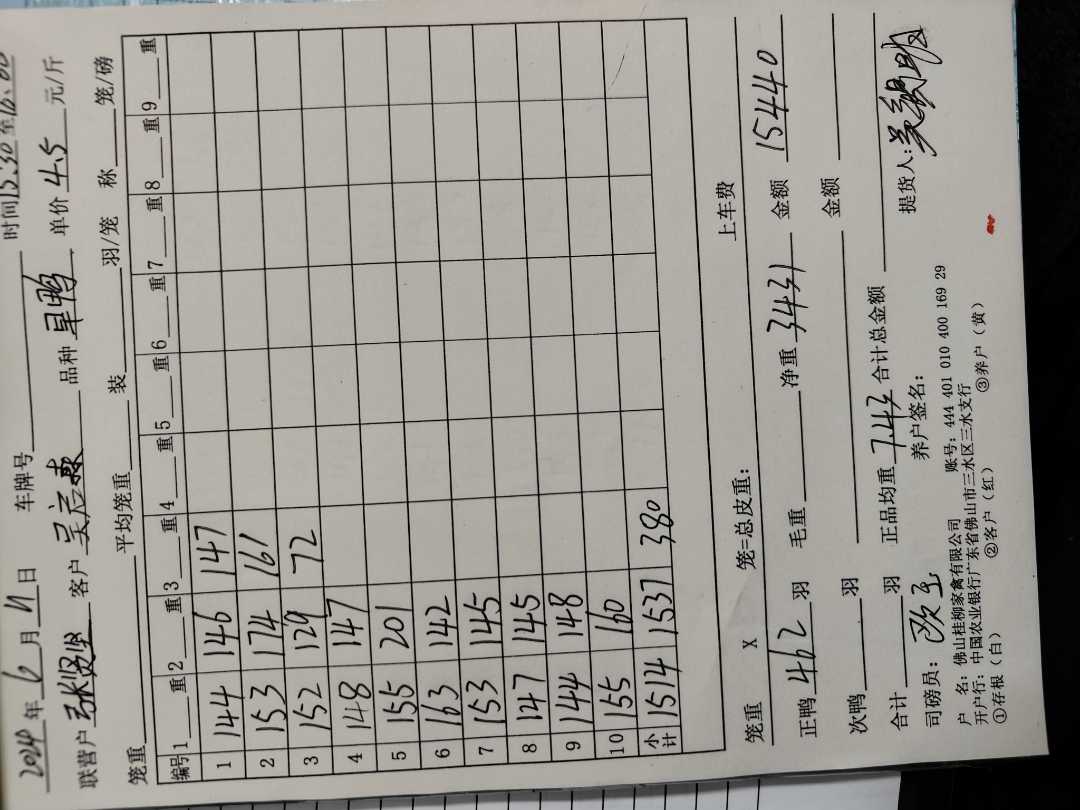 2024年6月11日 车牌号 时间15:30至16:00
联营户张贤坚 客户吴启森 品种旱鸭 单价4.5元/斤
笼重 平均笼重 装 羽/笼 称 笼/磅
编号 1 重 2 重 3 重 4 重 5 重 6 重 7 重 8 重 9 重
1 144 146 147
2 153 174 161
3 152 129 72
4 148 147
5 155 201
6 163 142
7 153 145
8 147 145
9 144 148
10 155 160
小计 1514 1537 380
笼重 X 笼=总皮重: 上车费
正鸭462羽 毛重 净重3431 金额15440
次鸭 羽 金额
合计 羽 正品均重7.43 合计总金额
司磅员: 养户签名: 提货人:
户 名: 佛山桂柳家禽有限公司 账号: 444 401 010 400 169 29
开户行: 中国农业银行广东省佛山市三水区三水支行
①存根（白） ②客户（红） ③养户（黄）